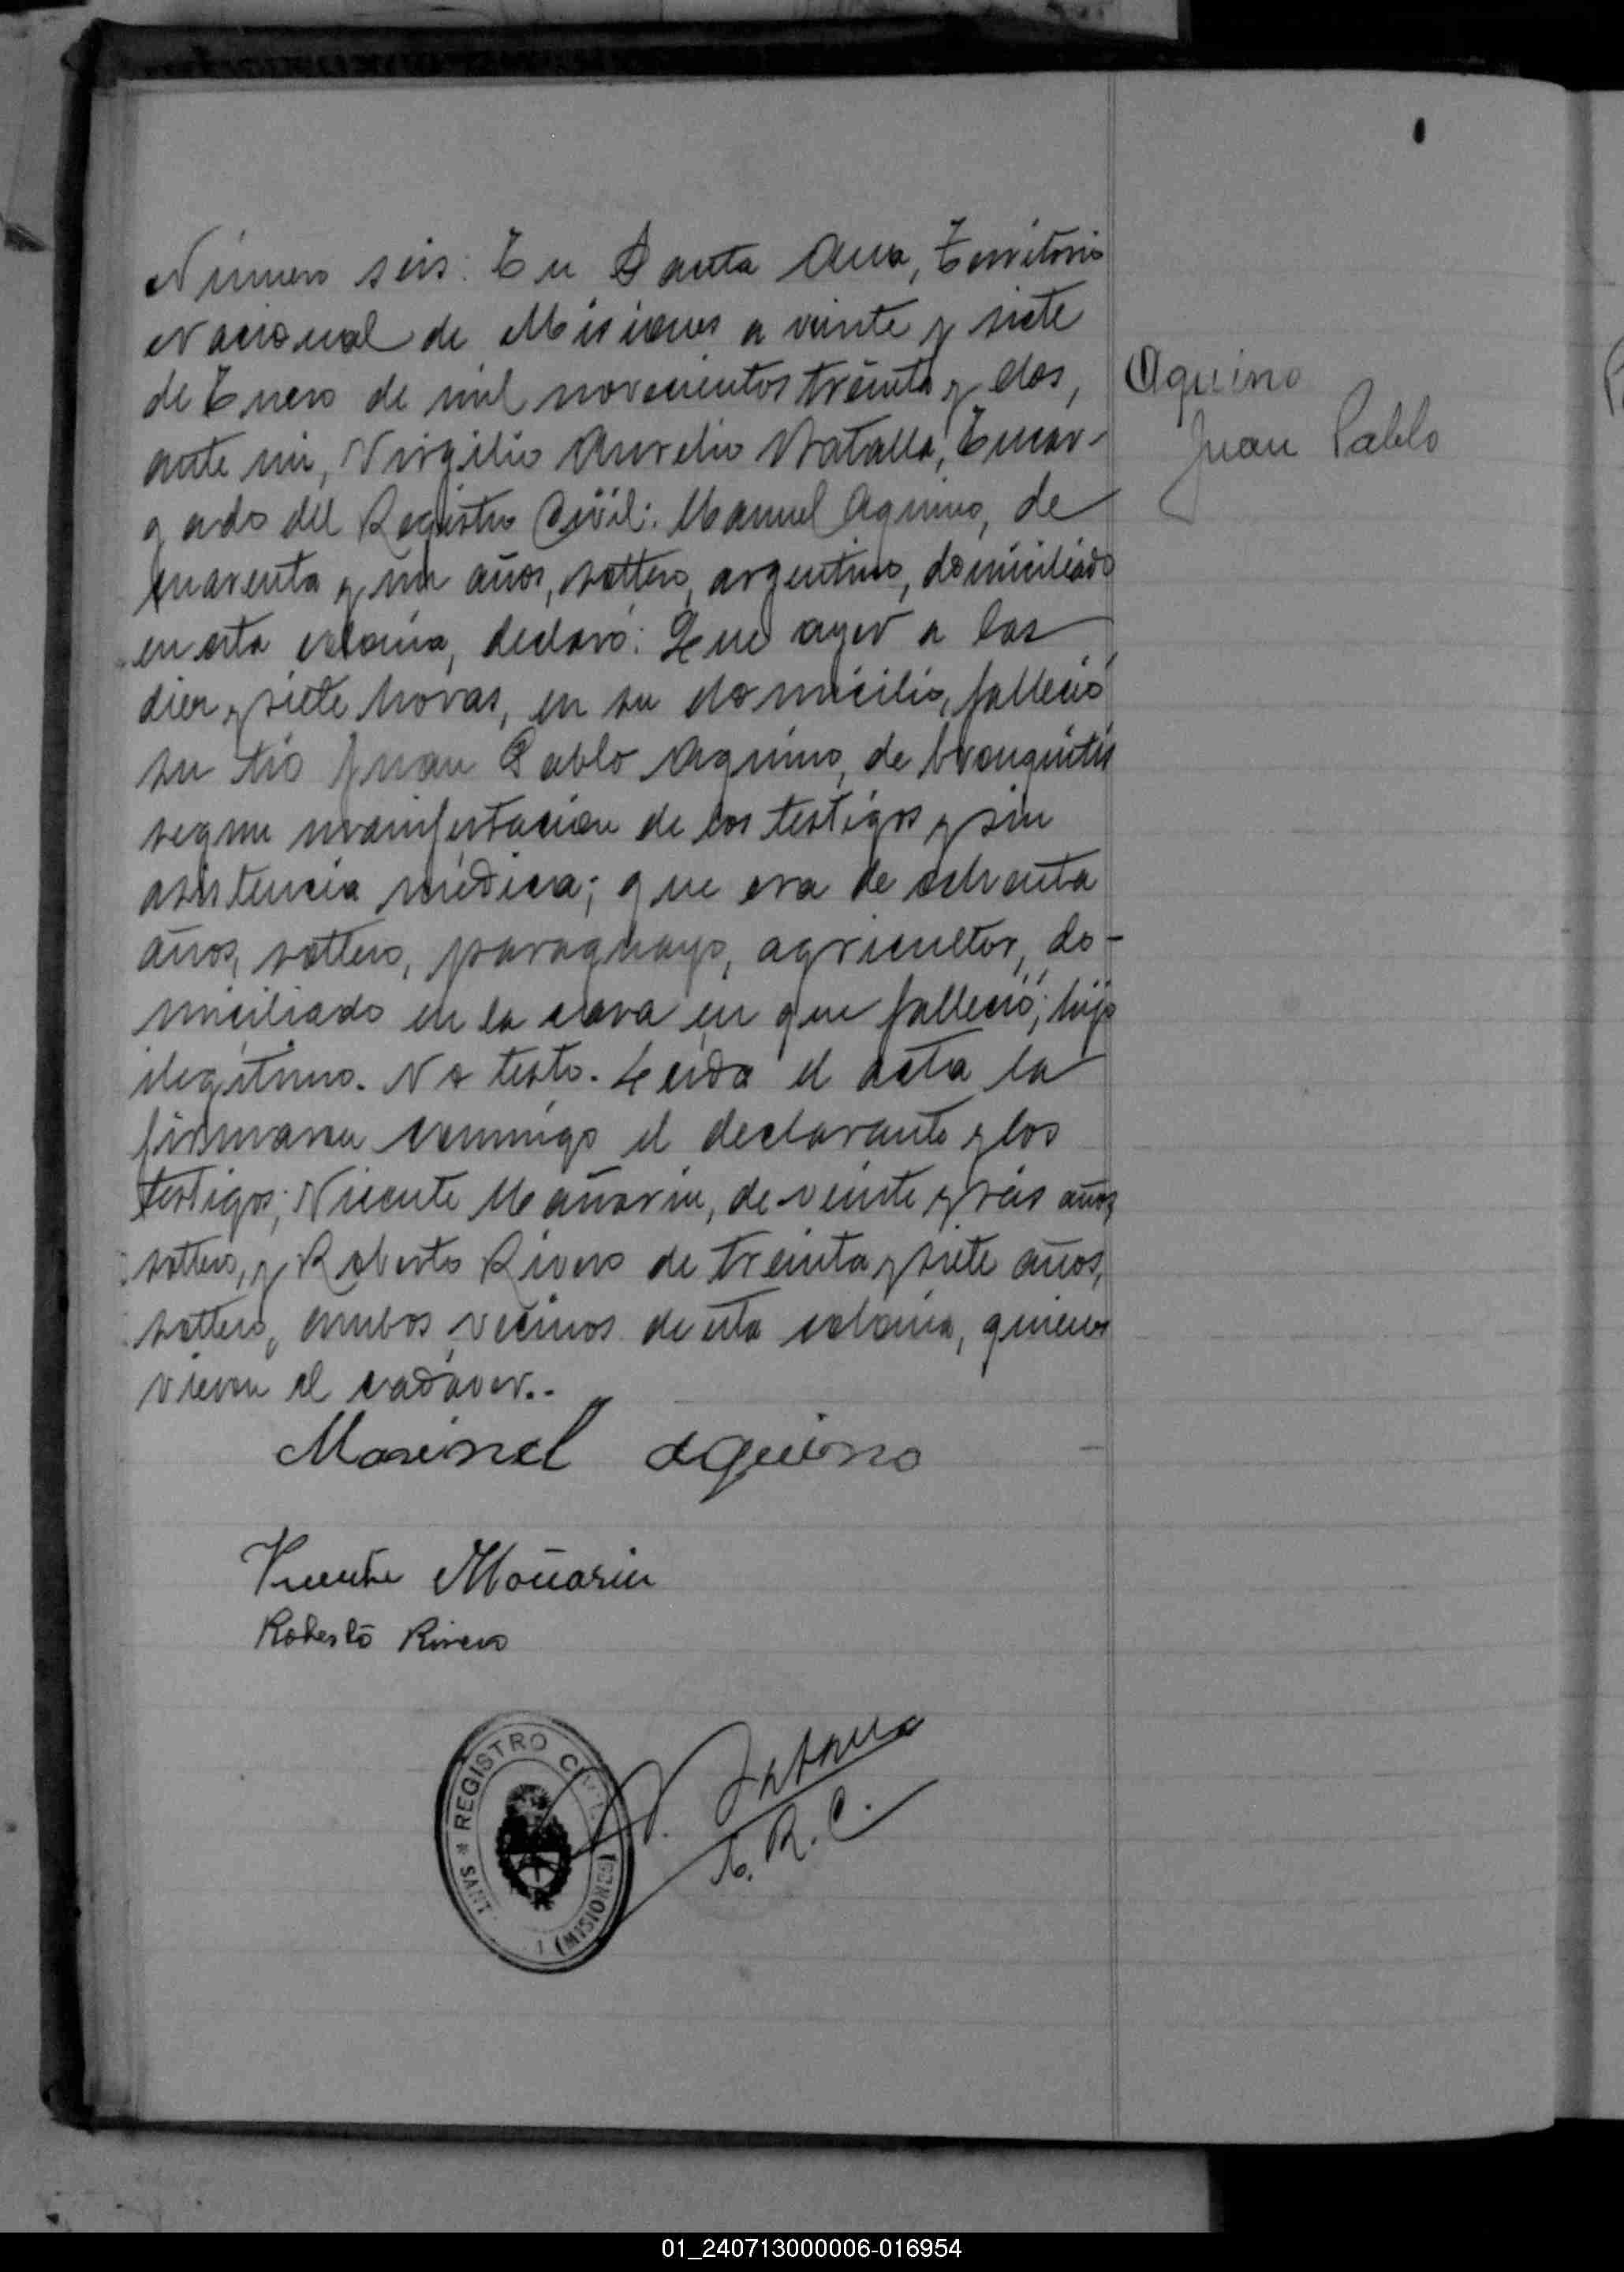 Número seis: En Santa Ana, Territorio
Nacional de Misiones a veinte y siete
de Enero de mil novecientos treinta y dos,
Aquino
Juan Pablo
ante mi, Virgilio Aurelio Batalla, Encar-
gado del Registro Civil: Manuel Aquino, de
cuarenta y un años, soltero, argentino, domiciliado
en esta colonia, declaró: Que ayer a las
diez y siete horas, en su domicilio, falleció
su tío Juan Pablo Aquino, de bronquitis
segun manifestacion de los testigos y sin
asistencia médica; que era de ochenta
años, soltero, paraguayo, agricultor, do-
miciliado en la casa en que falleció; hijo
ilegítimo. No testo. Leída el acta la
firmaron conmigo el declarante y los
testigos; Vicente Mañarin, de veinte y seis años,
soltero, y Roberto Rivero de treinta y siete años,
soltero, ambos vecinos de esta colonia, quienes
vieron el cadáver..
Manuel Aquino
Vicente Mañarin
Roberto Rivero
REGISTRO CIVIL
* SANT
(MISIONES)
E. R. C.
01_240713000006-016954